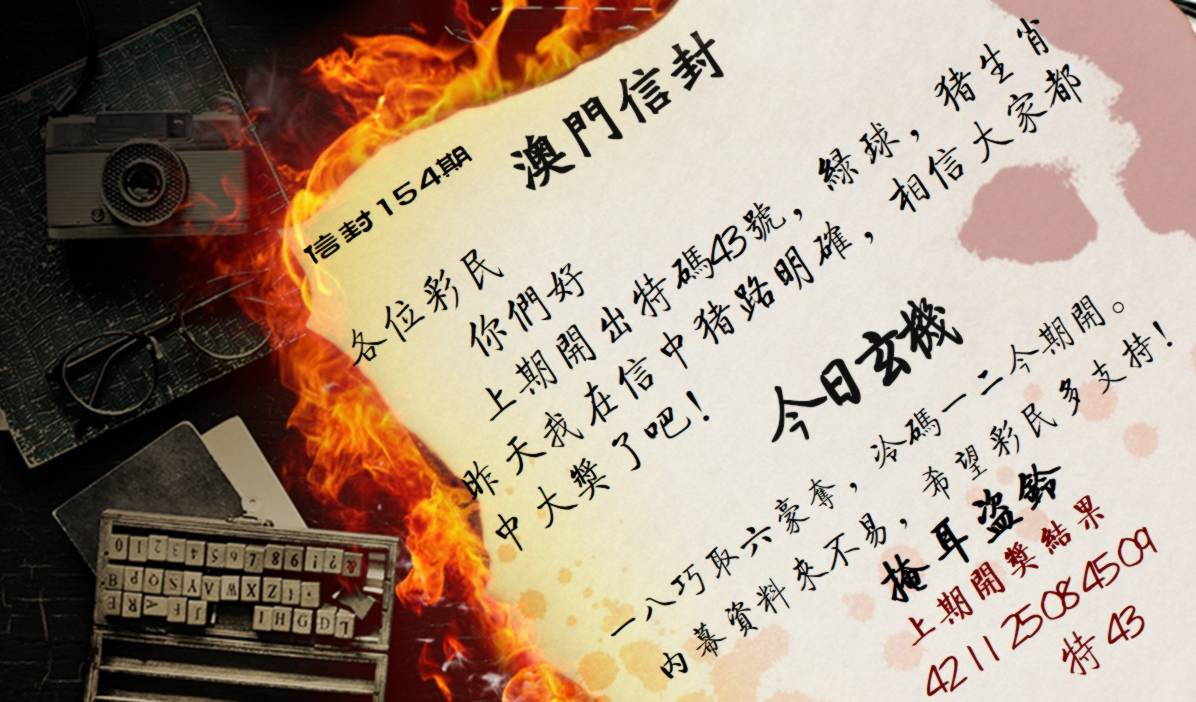 澳門信封
信封154期
各位彩民
你們好
上期開出特碼43號，綠球，猪生肖
昨天我在信中猪路明確，相信大家都
中大獎了吧！
今日玄機
一八巧取六豪奪，冷碼一二今期開。
内幕資料來不易，希望彩民多支持！
掩耳盗鈴
上期開獎結果
42 11 25 08 45 09
特 43
&?!98765432 10
BPQSYAWXZ(.
ERAFJ IHGHL